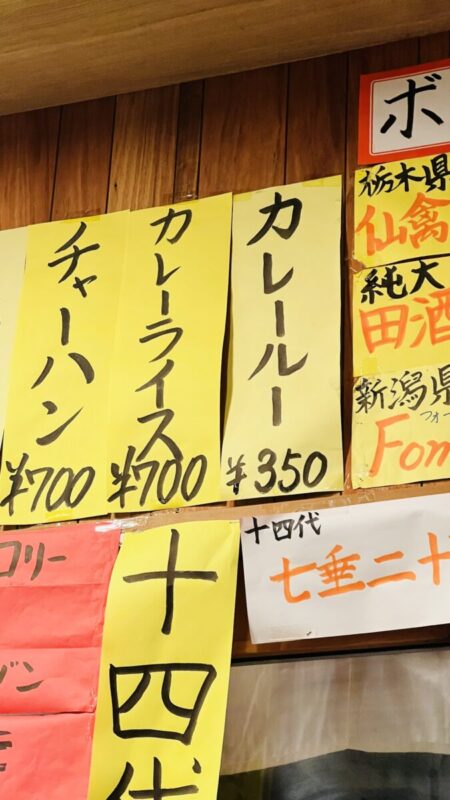 チャーハン
¥700
カレーライス
¥700
カレールー
¥350
ボ
栃木県
仙禽
純大
田酒
新潟県
フォー
十四代
七垂二十
コリー
ゾン
十四代